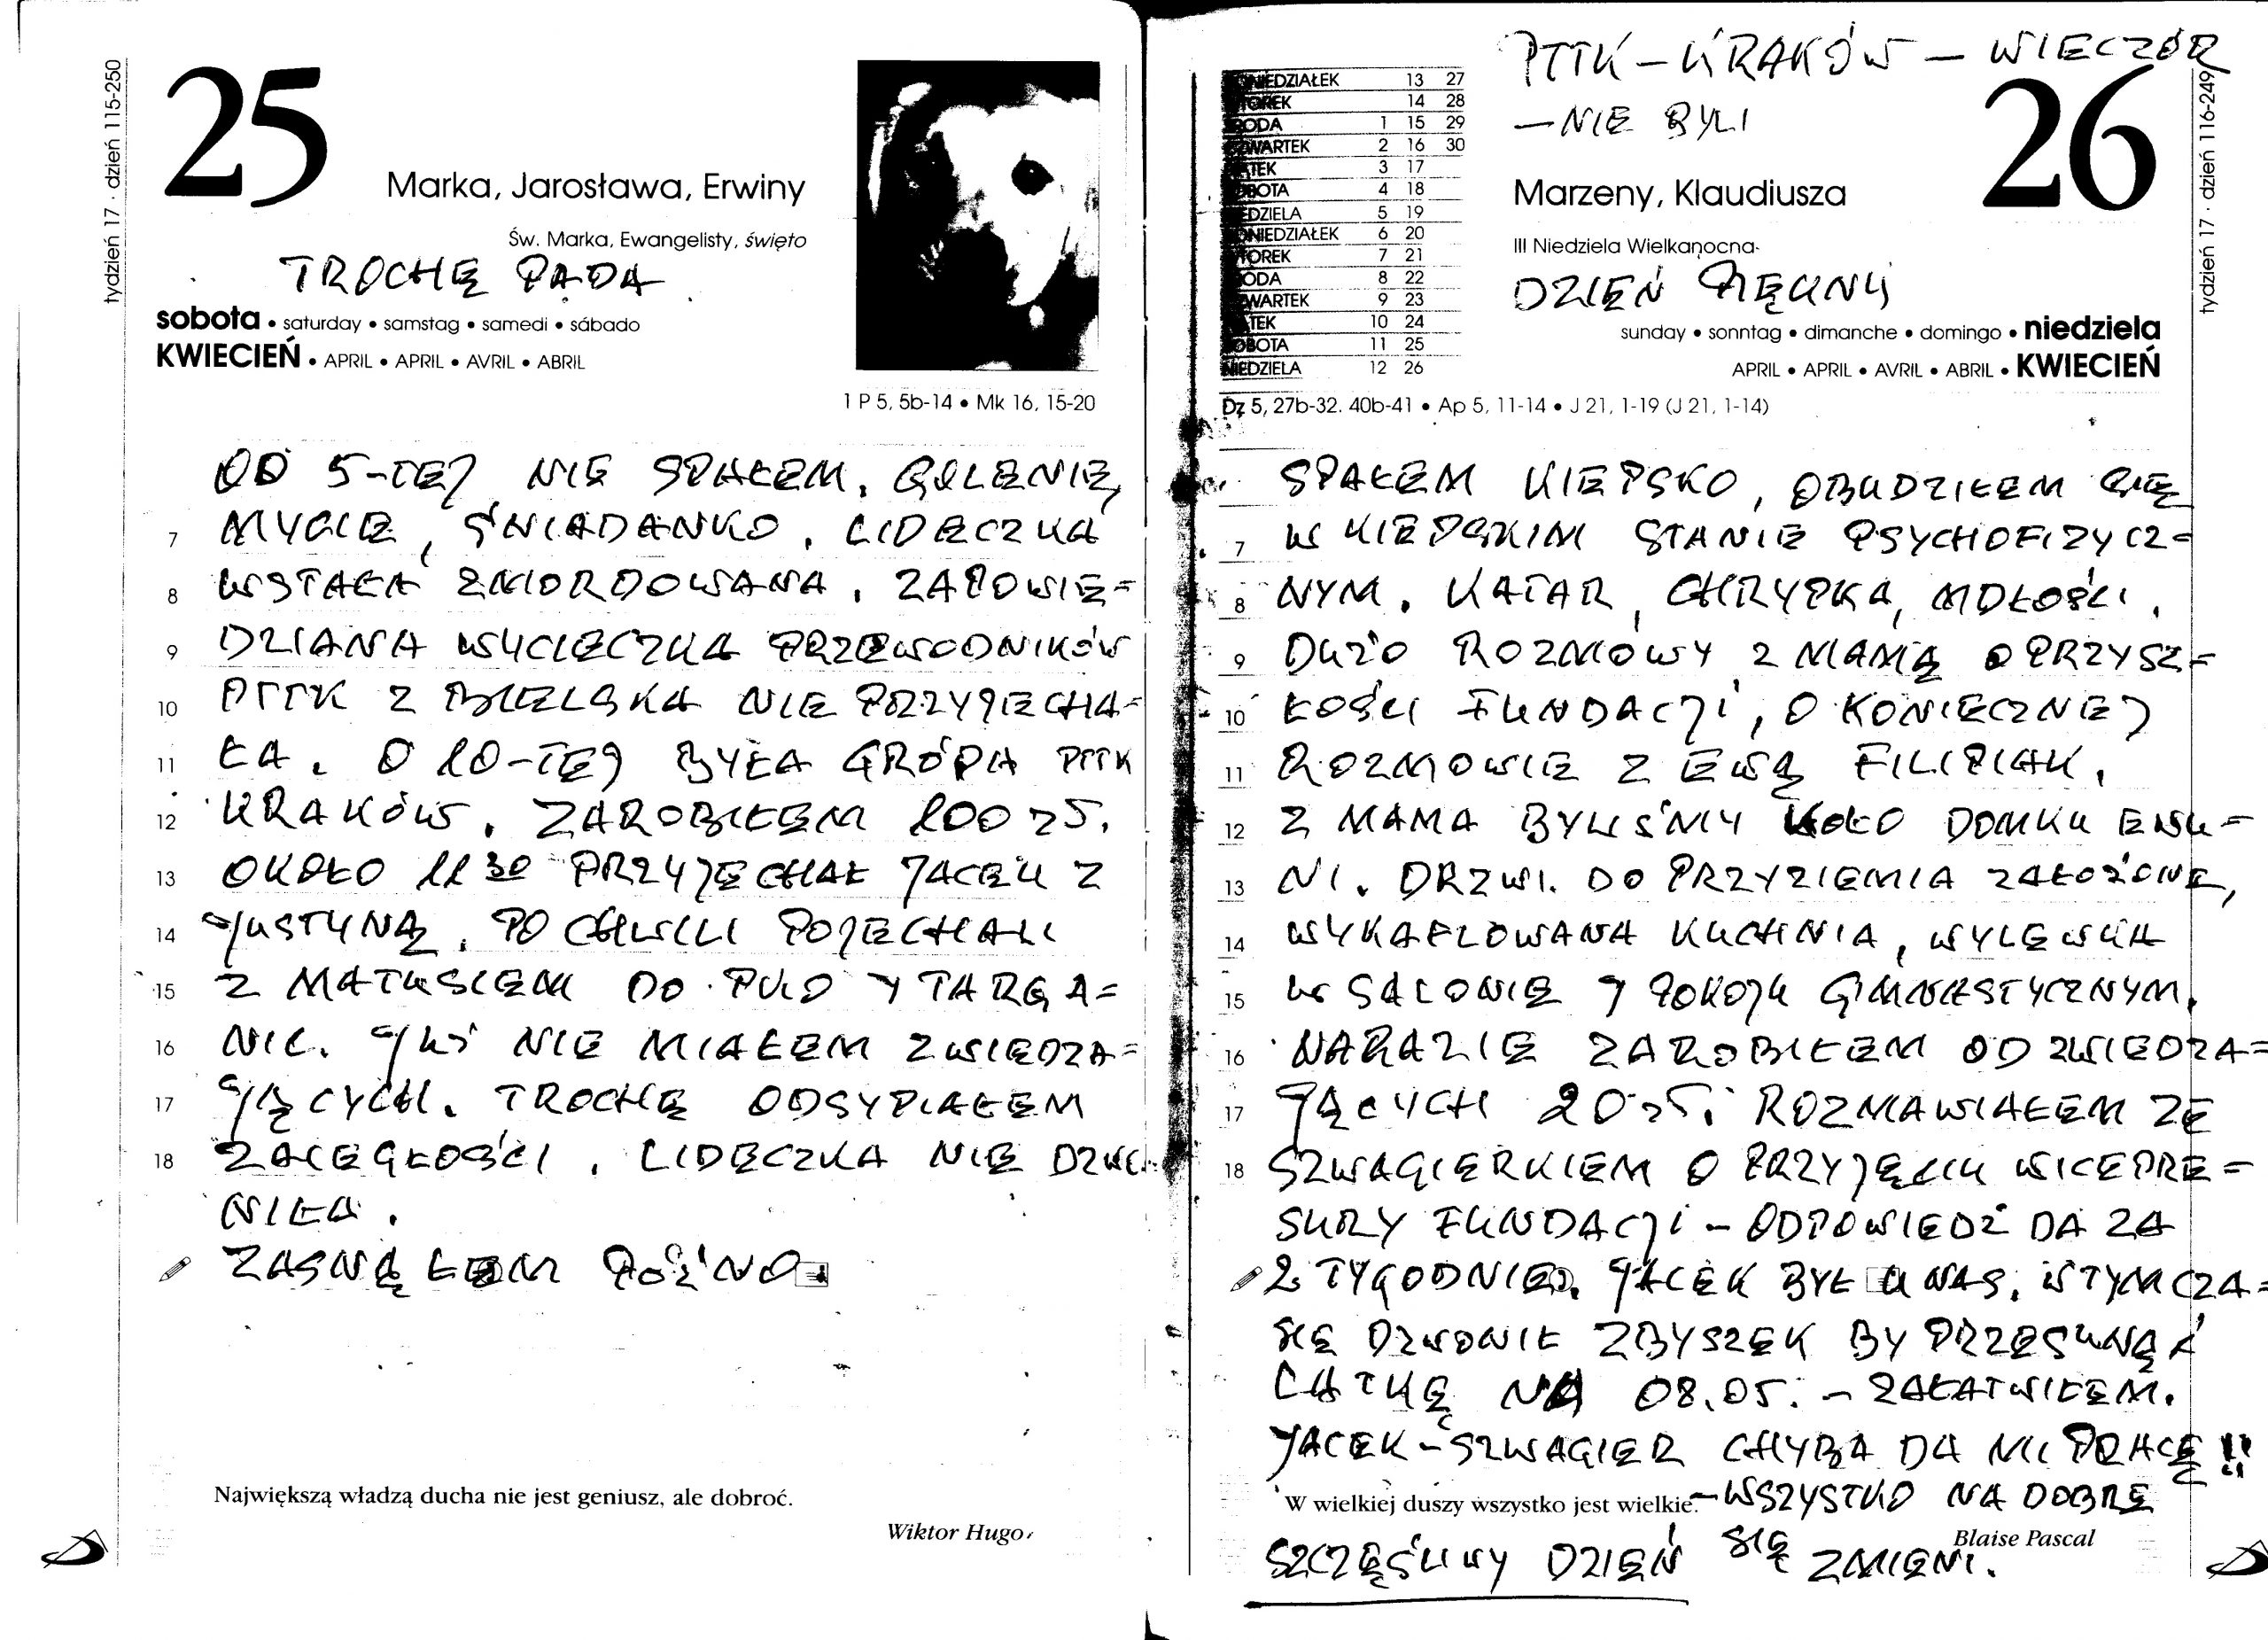 tydzień 17 · dzień 115-250
25
Marka, Jarosława, Erwiny
Św. Marka, Ewangelisty, święto
TROCHĘ PADA
sobota • saturday • samstag • samedi • sábado
KWIECIEŃ • APRIL • APRIL • AVRIL • ABRIL
1 P 5, 5b-14 • Mk 16, 15-20
OD 5-TEJ NIE SPAŁEM. GOLENIE,
7 MYCIE, ŚNIADANKO. LIDECZKA
8 WSTAŁA ZMORDOWANA. ZAPOWIE=
9 DZIANA WYCIECZKA PRZEWODNIKÓW
10 PTTK Z BIELSKA NIE PRZYJECHA=
11 ŁA. O 10-TEJ BYŁA GRÓPA PTTK
12 KRAKÓW. ZAROBIŁEM 100 ZŁ.
13 OKOŁO 11 30 PRZYJECHAŁ JACEK Z
14 JUSTYNĄ. PO CHWILI POJECHALI
15 Z MATUSIEM DO PUO Y TARGA=
16 NIC. JUŻ NIE MIAŁEM ZWIEDZA=
17 JĄCYCH. TROCHĘ ODSYPIAŁEM
18 ZALEGŁOŚCI. LIDECZKA NIE DZWO
NIŁA.
ZASNĄŁEM PÓŹNO
Największą władzą ducha nie jest geniusz, ale dobroć.
Wiktor Hugo
PTTK – KRAKÓW – WIECZÓR
– NIE BYLI
PONIEDZIAŁEK 13 27
WTOREK 14 28
ŚRODA 1 15 29
CZWARTEK 2 16 30
PIĄTEK 3 17
SOBOTA 4 18
NIEDZIELA 5 19
PONIEDZIAŁEK 6 20
WTOREK 7 21
ŚRODA 8 22
CZWARTEK 9 23
PIĄTEK 10 24
SOBOTA 11 25
NIEDZIELA 12 26
26
tydzień 17 · dzień 116-249
Marzeny, Klaudiusza
III Niedziela Wielkanocna
DZIEŃ PIĘKNY
sunday • sonntag • dimanche • domingo • niedziela
APRIL • APRIL • AVRIL • ABRIL • KWIECIEŃ
Dz 5, 27b-32. 40b-41 • Ap 5, 11-14 • J 21, 1-19 (J 21, 1-14)
SPAŁEM KIEPSKO, OBUDZIŁEM SIĘ
7 W KIEPSKIM STANIE PSYCHOFIZYCZ=
8 NYM. KATAR, CHRYPKA, MDŁOŚCI.
9 DUŻO ROZMOWY Z MAMĄ O PRZYSZ=
10 ŁOŚCI FUNDACJI, O KONIECZNEJ
11 ROZMOWIE Z EWĄ FILIPIAK.
12 Z MAMA BYLIŚMY KOŁO DOMKU EWU=
13 NI. DRZWI. DO PRZYZIEMIA ZAŁOŻONE,
14 WYKAFLOWANA KUCHNIA, WYLEWKA
15 W SALONIE I POKOJU GIMNASTYCZNYM.
16 NARAZIE ZAROBIŁEM OD ZWIEDZA=
17 JĄCYCH 20 ZŁ. ROZMAWIAŁEM ZE
18 SZWAGIERKIEM O PRZYJĘCIU WICEPRE=
SURY FUNDACJI – ODPOWIEDŹ DA ZA
2 TYGODNIE. JACEK BYŁ U NAS. W TYM CZA=
SIE DZWONIŁ ZBYSZEK BY PRZESUNĄĆ
CHTKĘ NA 08.05. – ZAŁATWIŁEM.
JACEK – SZWAGIER CHYBA DA MI PRACĘ!!
W wielkiej duszy wszystko jest wielkie. – WSZYSTKO NA DOBRE
Blaise Pascal
SZCZĘŚLIWY DZIEŃ SIĘ ZMIENI.